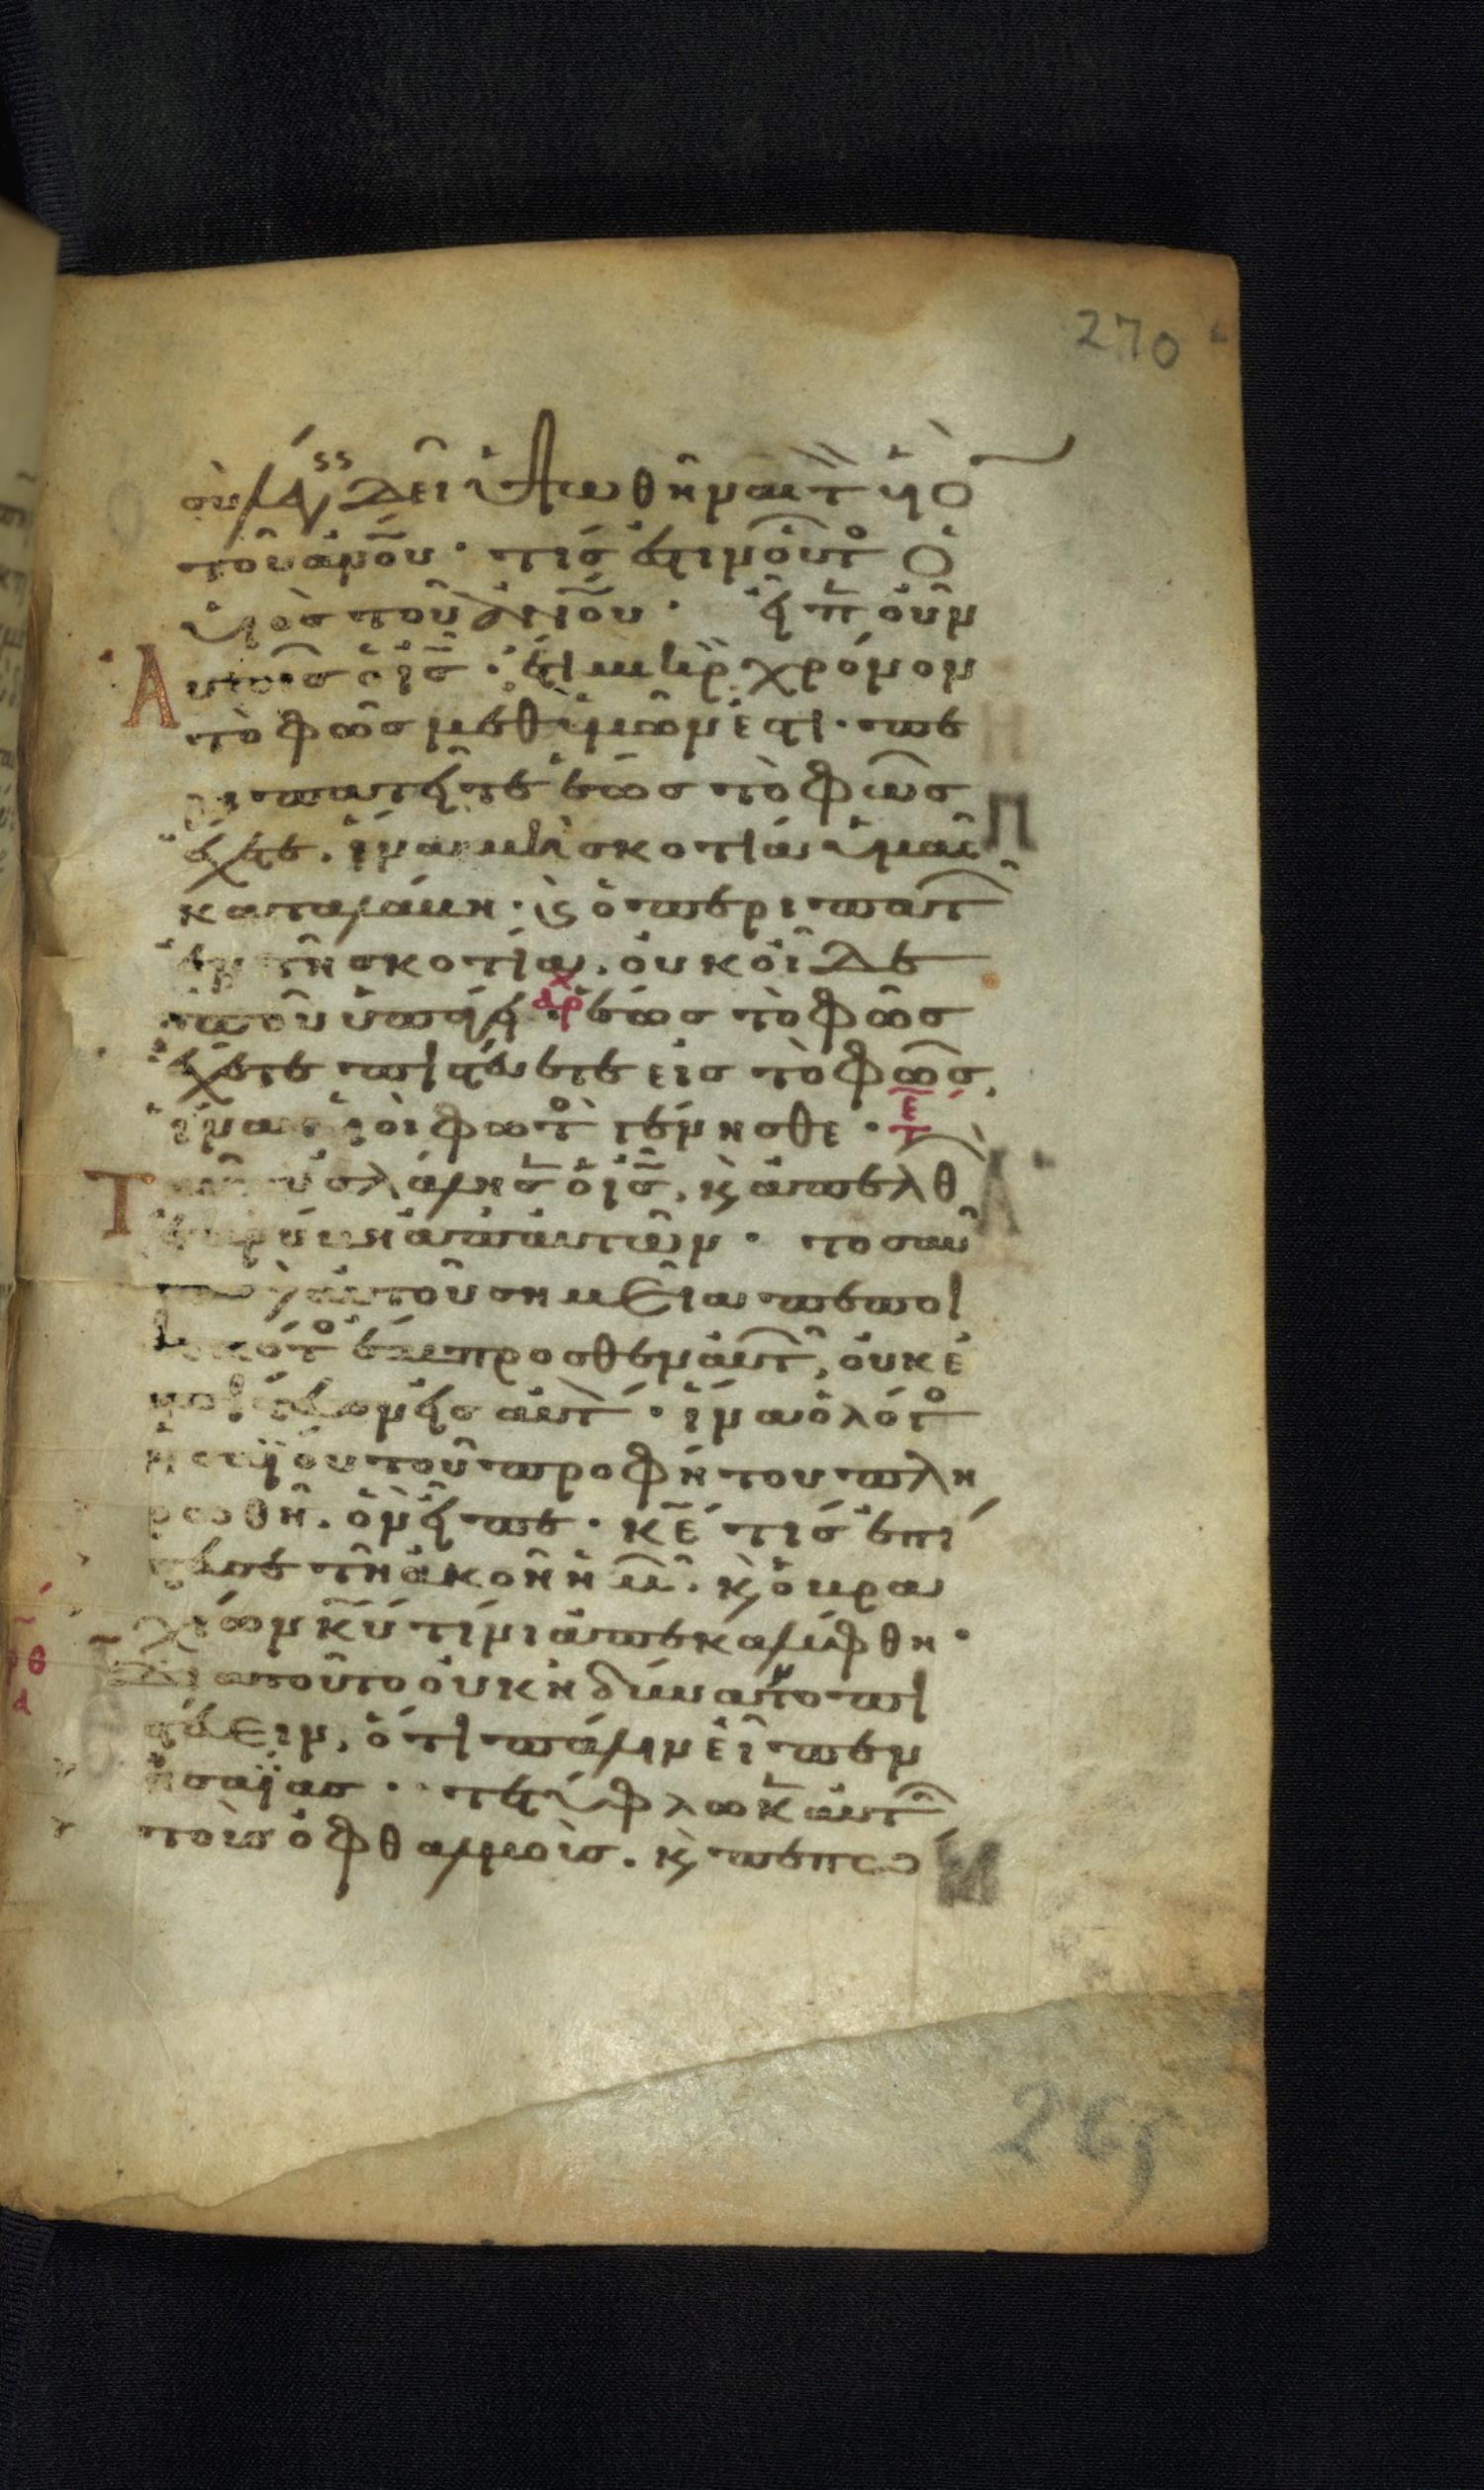 270
σὺ λέγεις δεῖ ὑψωθῆναι τὸν υἱὸ
τοῦ ἀνου· τίς ἐστιν οὗτο ὁ
υἱὸς τοῦ ἀνου· εἶπεν οὖν
αὐτοῖς ὁ ις· ἔτι μικρὸν χρόνον
τὸ φῶς μεθ ἡμῶν ἐστι· πε
ριπατεῖτε ἕως τὸ φῶς
ἔχετε. ἵνα μὴ σκοτία ὑμᾶς
καταλάβη· καὶ ὁ περιπατῶν
ἐν τῆ σκοτία, οὐκ οἶδε
ποῦ ὑπάγει· αρχ ἕως τὸ φῶς
ἔχετε πιστεύετε εἰς τὸ φῶς,
ἵνα υἱοὶ φωτὸ γένησθε· τε
Ταῦτα ἐλάλησεν ὁ ις, καὶ ἀπελθὼν
ἐκρύβη ἀπ αὐτῶν· τοσαῦ
τα δὲ αὐτοῦ σημεῖα πεποι
ηκότο ἔμπροσθεν αὐτῶν, οὐκ ἐ
πίστευον εἰς αὐτὸν· ἵνα ὁ λόγο
ἠσαΐου τοῦ προφήτου πλη
ρωθῆ. ὃν εἶπε· κε τίς ἐπί
στευσε τῆ ἀκοῆ ἡμῶν. καὶ ὁ βρα
χίων κυ τίνι ἀπεκαλύφθη·
Διατοῦτο οὐκ ἠδύναντο πι
στεύειν, ὅτι πάλιν εἶπεν
ἠσαΐας· τετύφλωκεν αὐτῶν
τοὺς ὀφθαλμοὺς. καὶ πεπω
265